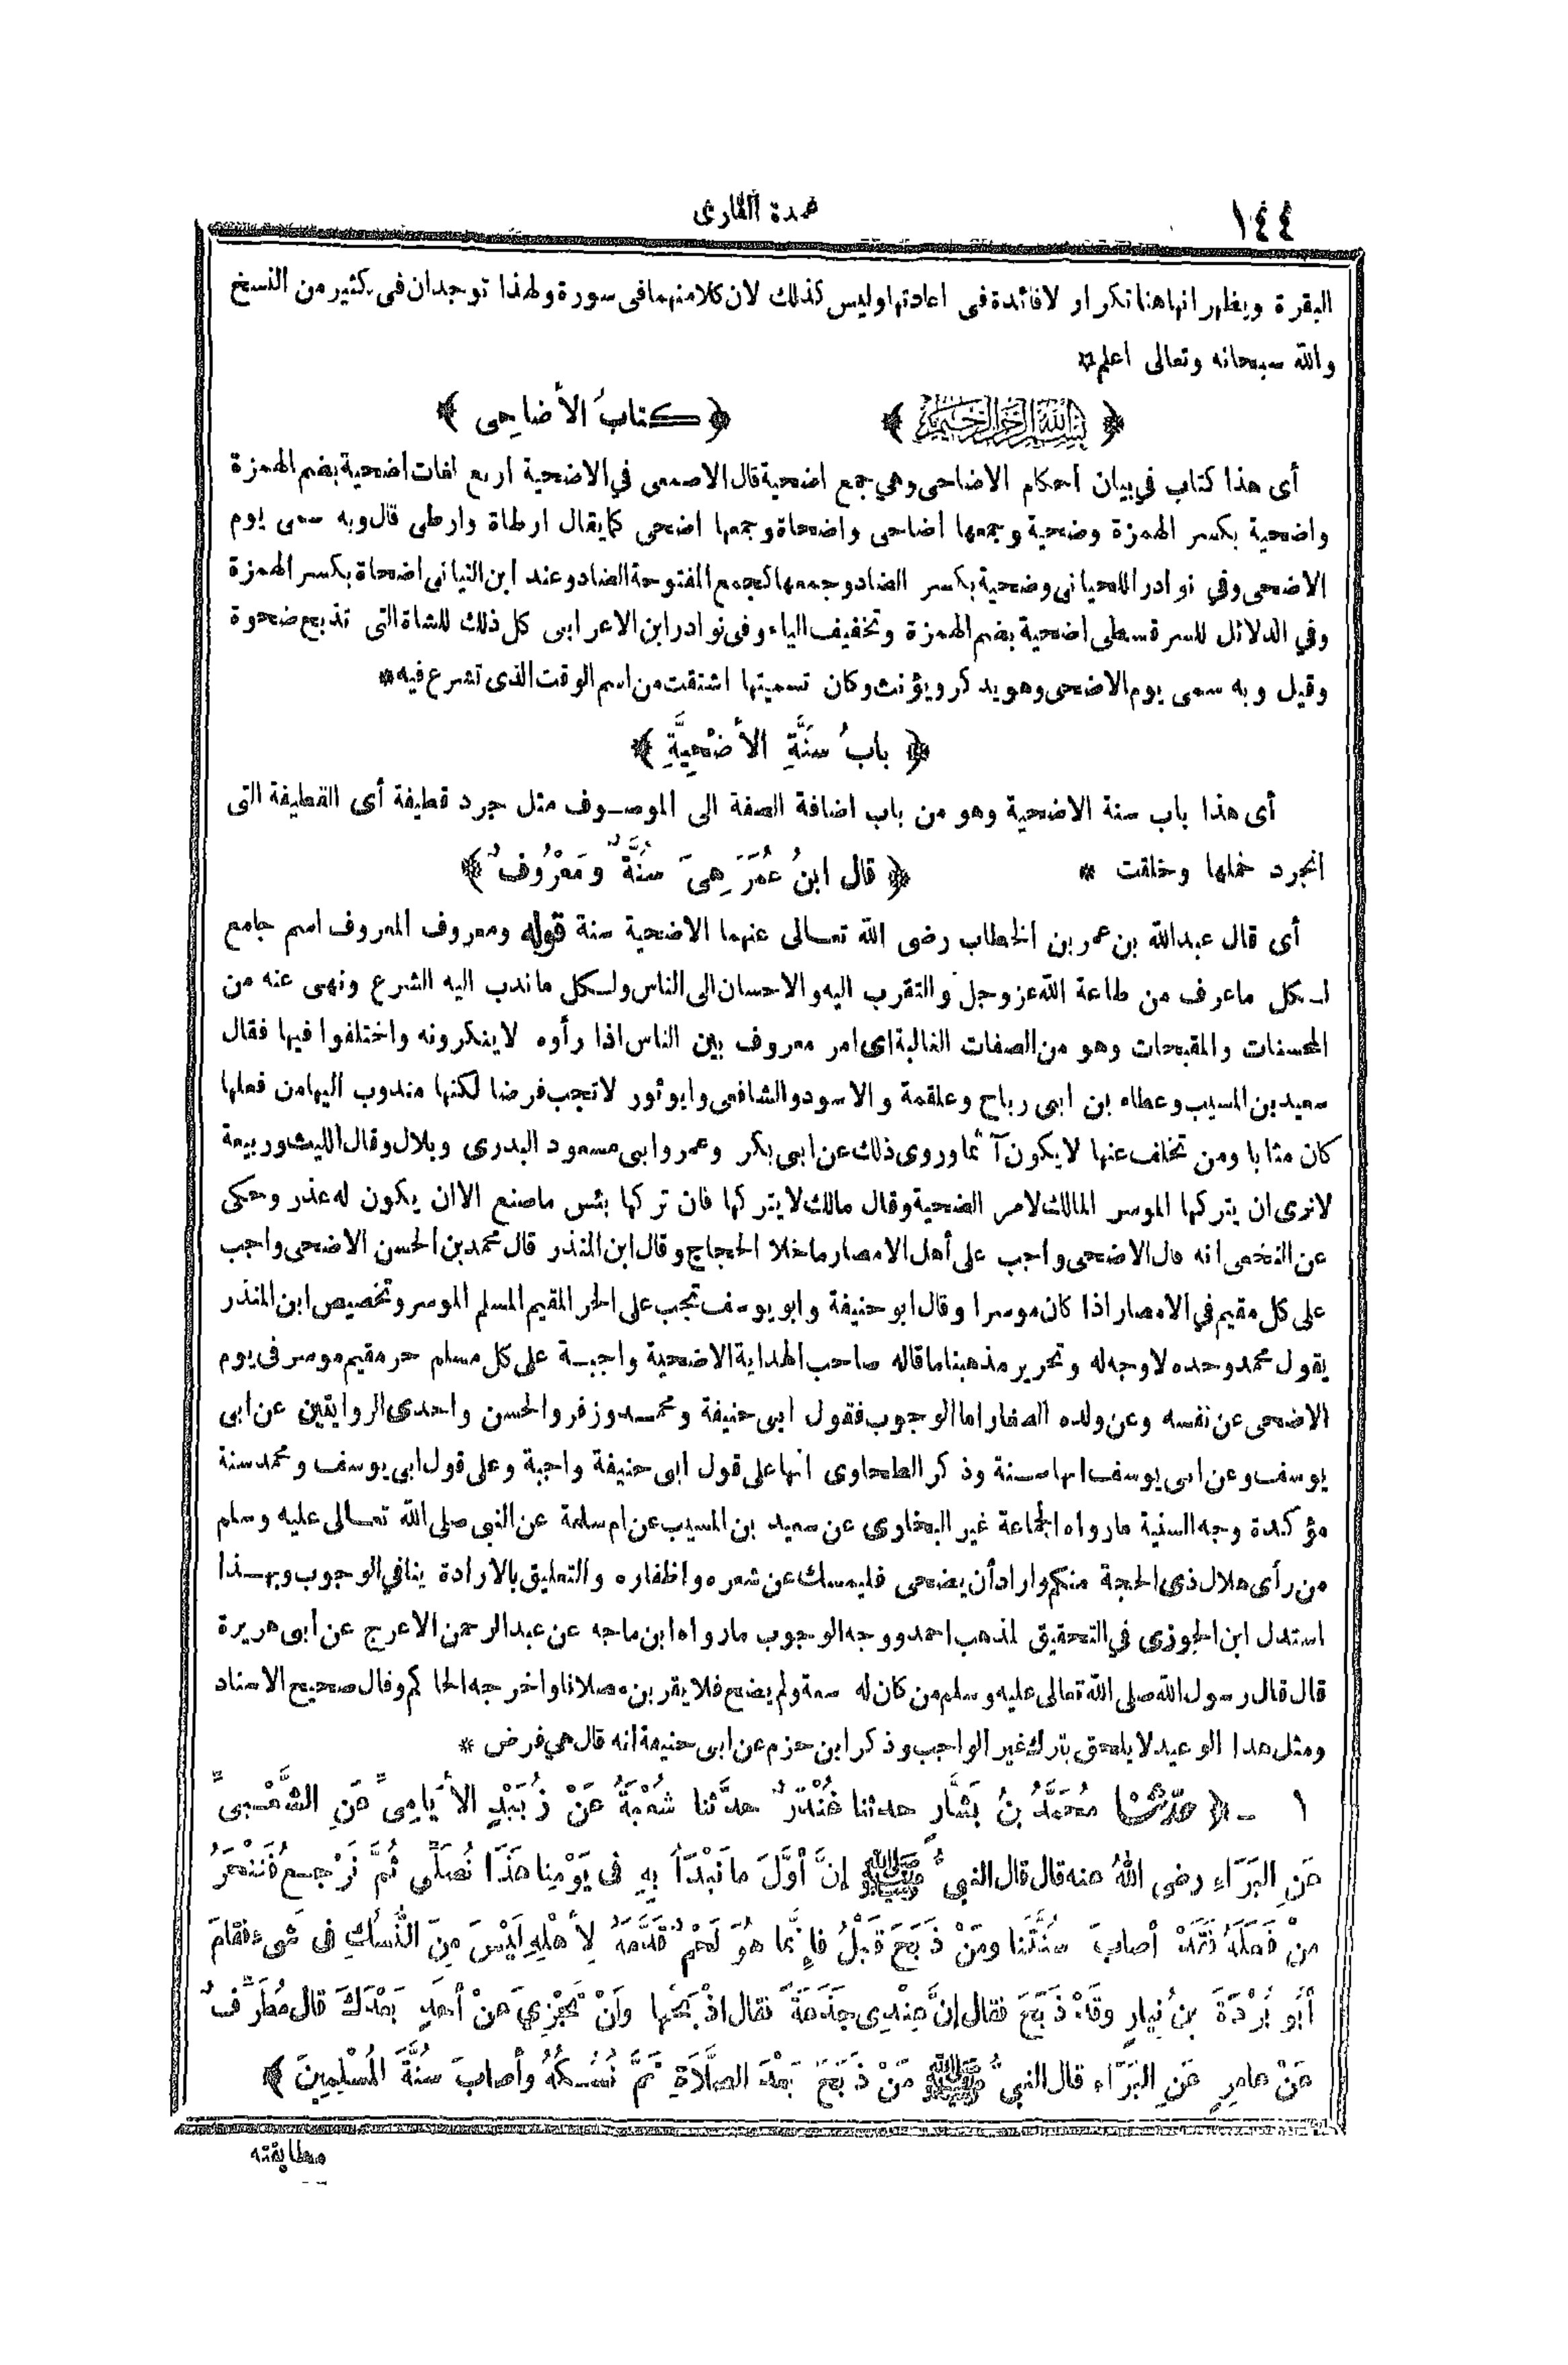 ١٤٤
عمدة القارى
البقرة ويظهر انها هنا تكرار لا فائدة فى اعادتها وليس كذلك لان كلا منهما فى سورة ولهذا توجدان فى كثير من النسخ
والله سبحانه وتعالى اعلم *
﴿ بسم الله الرحمن الرحيم ﴾ ﴿ كتابُ الأضاحِى ﴾
أى هذا كتاب في بيان احكام الاضاحى وهي جمع اضحية قال الاصمعى في الاضحية اربع لغات اضحية بضم الهمزة
واضحية بكسر الهمزة وضحية وجمعها اضاحى واضحاة وجمعها اضحى كما يقال ارطاة وارطى قال وبه سمى يوم
الاضحى وفي نوادر اللحيانى وضحية بكسر الضاد وجمعها كجمع المفتوحة الضاد وعند ابن التيانى اضحاة بكسر الهمزة
وفي الدلائل للسرقسطى اضحية بضم الهمزة وتخفيف الياء وفى نوادر ابن الاعرابى كل ذلك للشاة التى تذبح ضحوة
وقيل وبه سمى يوم الاضحى وهو يذكر ويؤنث وكان تسميتها اشتقت من اسم الوقت الذى تشرع فيه *
﴿ بابُ سنَّةِ الأُضْحِيَّةِ ﴾
أى هذا باب سنة الاضحية وهو من باب اضافة الصفة الى الموصـوف مثل جرد قطيفة أى القطيفة التى
انجرد خملها وخلقت * ﴿ قال ابنُ عُمَرَ هِىَ سُنَّةٌ ومَعْرُوفٌ ﴾
أى قال عبد الله بن عمر بن الخطاب رضى الله تعـالى عنهما الاضحية سنة قوله ومعروف المعروف اسم جامع
لـكل ما عرف من طاعة الله عز وجل والتقرب اليه والاحسان الى الناس ولـكل ما ندب اليه الشرع ونهى عنه من
المحسنات والمقبحات وهو من الصفات الغالبة اى امر معروف بين الناس اذا رأوه لا ينكرونه واختلفوا فيها فقال
سعيد بن المسيب وعطاء بن ابى رباح وعلقمة والاسود والشافعى وابو ثور لا تجب فرضا لكنها مندوب اليها من فعلها
كان مثابا ومن تخلف عنها لا يكون آثما وروى ذلك عن ابى بكر وعمر وابى مسعود البدرى وبلال وقال الليث وربيعة
لا نرى ان يتركها الموسر المالك لامر الضحية وقال مالك لا يتركها فان تركها بئس ما صنع الا ان يكون له عذر وحكى
عن النخعى انه قال الاضحى واجب على أهل الامصار ما خلا الحجاج وقال ابن المنذر قال محمد بن الحسن الاضحى واجب
على كل مقيم في الامصار اذا كان موسرا وقال ابو حنيفة وابو يوسف تجب على الحر المقيم المسلم الموسر وتخصيص ابن المنذر
يقول محمد وحده لا وجه له وتحرير مذهبنا ما قاله صاحب الهداية الاضحية واجبـة على كل مسلم حر مقيم موسر فى يوم
الاضحى عن نفسه وعن ولده الصغار اما الوجوب فقول ابى حنيفة ومحمـد وزفر والحسن واحدى الروايتين عن ابى
يوسف وعن ابى يوسف انها سنة وذكر الطحاوى انها على قول ابى حنيفة واجبة وعلى قول ابى يوسف ومحمد سنة
مؤكدة وجه السنية ما رواه الجماعة غير البخارى عن سعيد بن المسيب عن ام سلمة عن النبى صلى الله تعـالى عليه وسلم
من رأى هلال ذى الحجة منكم واراد أن يضحى فليمسك عن شعره واظفاره والتعليق بالارادة ينافي الوجوب وبهـذا
استدل ابن الجوزى في التحقيق لمذهب احمد ووجه الوجوب ما رواه ابن ماجه عن عبد الرحمن الاعرج عن ابى هريرة
قال قال رسول الله صلى الله تعالى عليه وسلم من كان له سعة ولم يضح فلا يقربن مصلانا واخرجه الحاكم وقال صحيح الاسناد
ومثل هذا الوعيد لا يلحق بترك غير الواجب وذكر ابن حزم عن ابى حنيفة انه قال هي فرض *
١ - ﴿ حدّثنا مُحَمَّدُ بنُ بَشَّارٍ حدثنا غُنْدَرٌ حدَّثنا شُعْبَةُ عَنْ زُبَيْدٍ الأَيَامِىِّ عَنِ الشَّعْـبِىِّ
عَنِ البَرَاءِ رضى اللهُ عنه قال قال النبىُّ ﷺ إنَّ أوَّلَ ما نَبْدَأُ بِهِ فى يَوْمِنا هَذَا نُصَلِّى ثُمَّ نَرْجِـعُ فَنَنْحَرُ
مَنْ فَعَلَهُ فَقَدْ أصابَ سُنَّتَنا ومَنْ ذَبَحَ قَبْلُ فإنَّما هُوَ لَحْمٌ قَدَّمَهُ لِأهْلِهِ لَيْسَ مِنَ النُّسُكِ فى شَىءٍ فقامَ
أبُو بُرْدَةَ بنُ نِيارٍ وقَدْ ذَبَحَ فقال إنَّ عِنْدِى جَذَعَةً فقال اذْبَحْها ولَنْ تَجْزِيَ عَنْ أحَدٍ بَعْدَكَ قال مُطَرِّفٌ
عَنْ عامِرٍ عَنِ البَرَاءِ قال النبىُّ ﷺ مَنْ ذَبَحَ بَعْدَ الصَّلَاةِ تَمَّ نُسُـكُهُ وأصابَ سُنَّةَ المُسْلِمِينَ ﴾
مطابقته